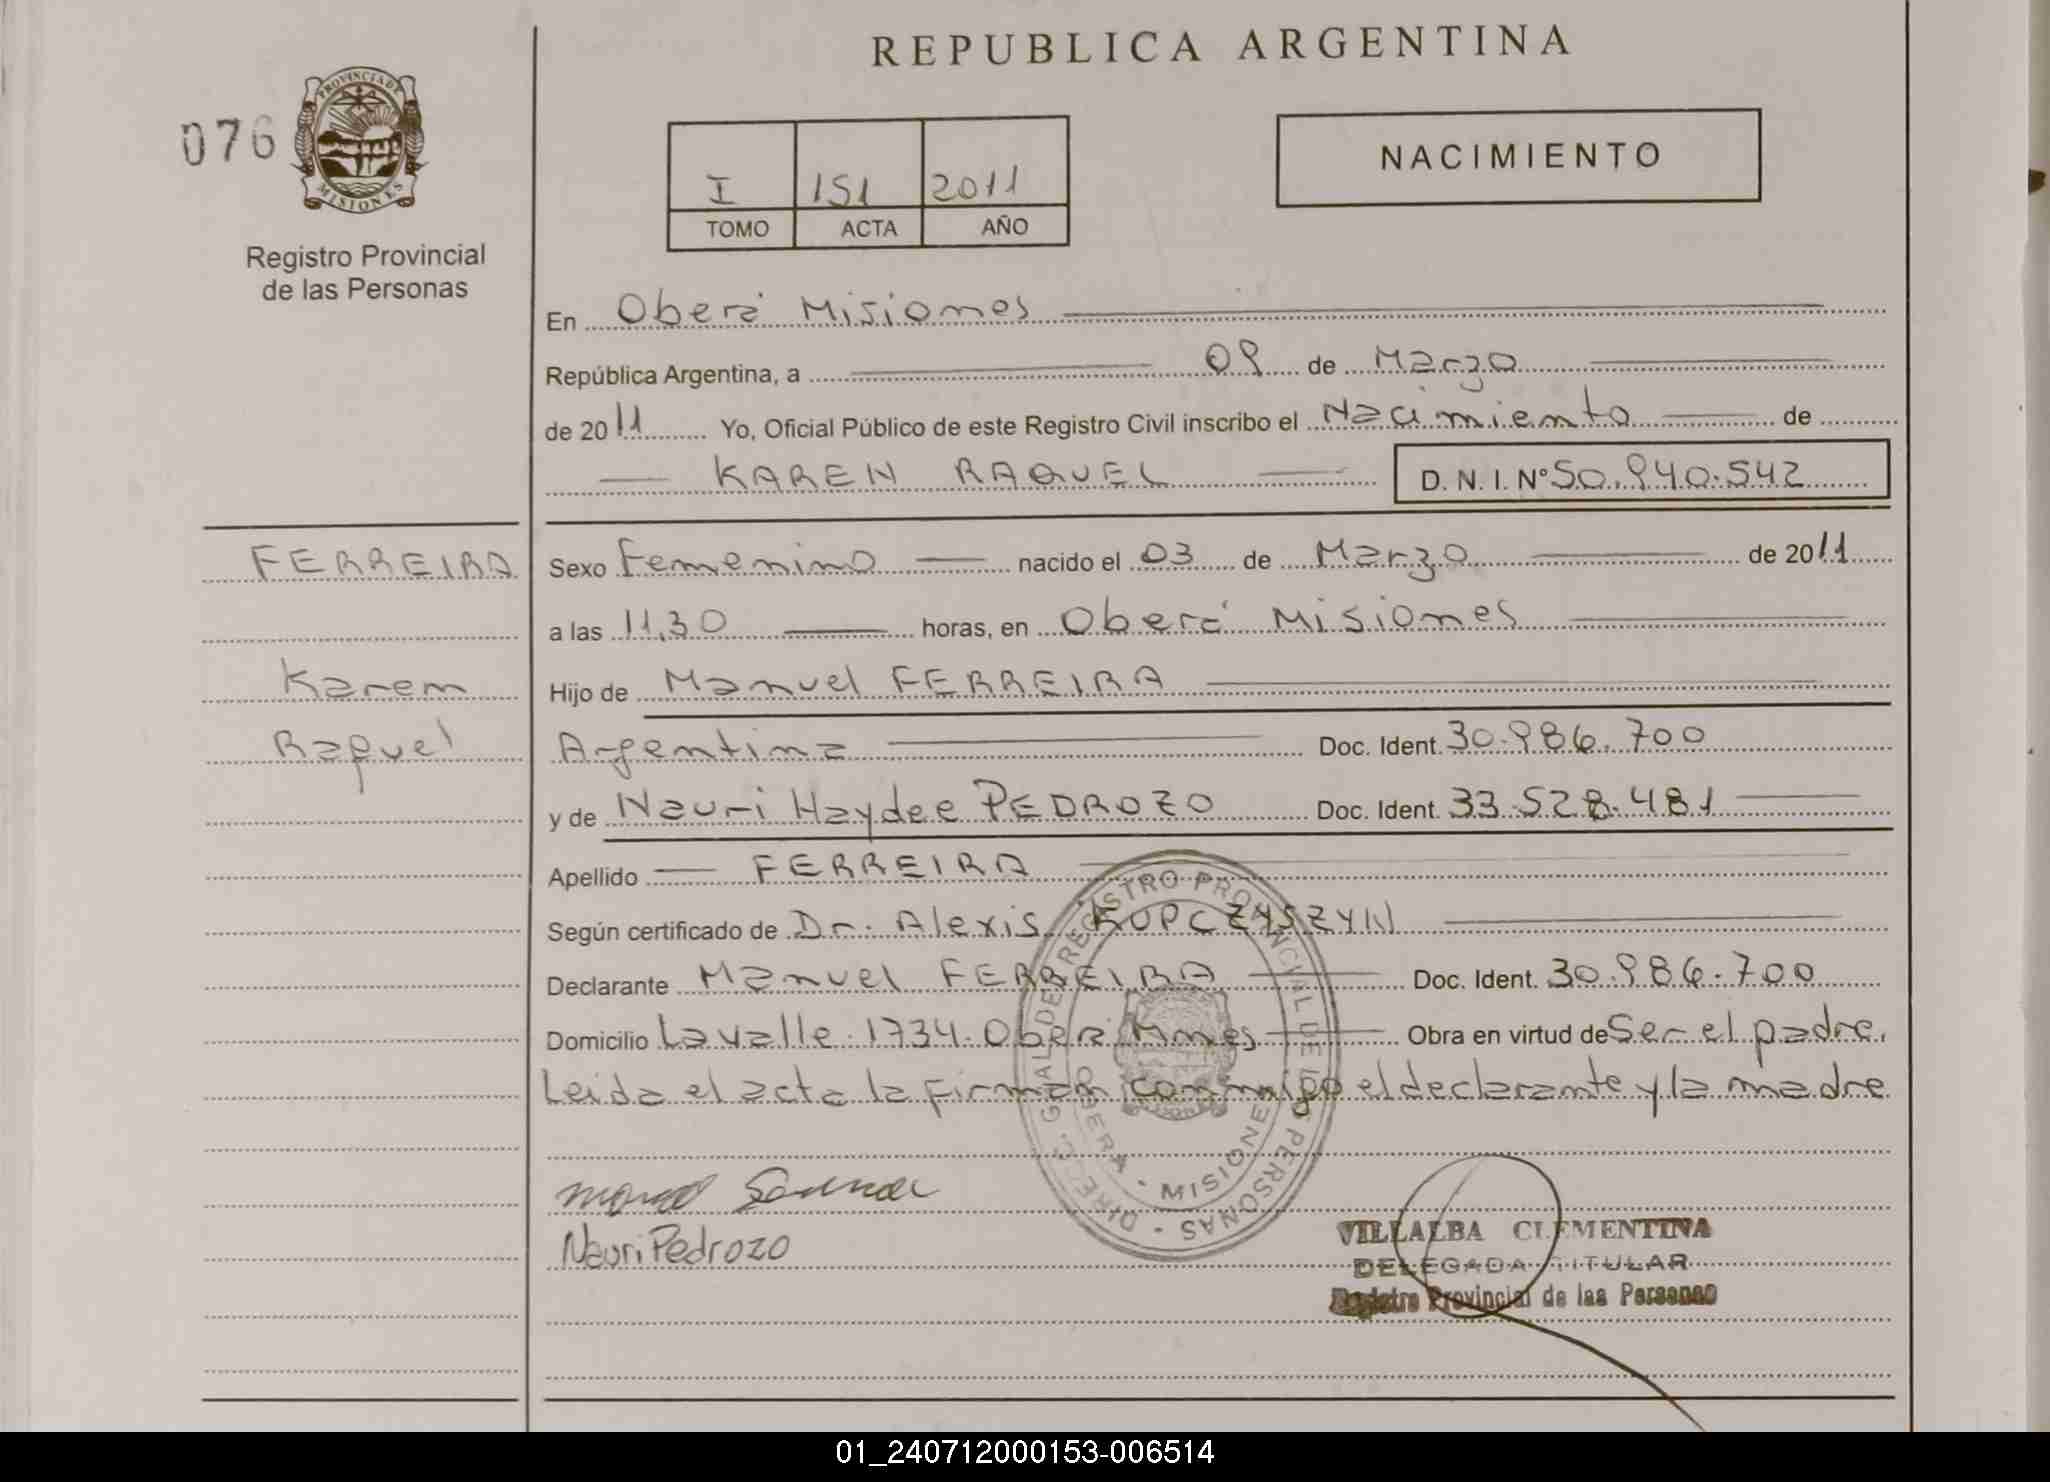 REPUBLICA ARGENTINA
076
PROVINCIA DE
MISIONES
Registro Provincial
de las Personas
I 151 2011
TOMO ACTA AÑO
NACIMIENTO
En Oberá Misiones
República Argentina, a 09 de Marzo
de 2011 Yo, Oficial Público de este Registro Civil inscribo el Nacimiento de
KAREN RAQUEL D. N. I. Nº 50.940.542
FERREIRA
Karen
Raquel
Sexo Femenino nacido el 03 de Marzo de 2011
a las 11,30 horas, en Oberá Misiones
Hijo de Manuel FERREIRA
Argentina Doc. Ident. 30.986.700
y de Nauri Haydee PEDROZO Doc. Ident. 33.528.481
Apellido FERREIRA
Según certificado de Dr. Alexis KUPCZYSZYN
Declarante Manuel FERREIRA Doc. Ident. 30.986.700
Domicilio Lavalle 1734. Oberá Mnes Obra en virtud de Ser el padre.
Leida el acta la firman conmigo el declarante y la madre
DIREC. GRAL DE REGISTRO PROVINCIAL DE LAS PERSONAS
OBERA - MISIONES
Nauri Pedrozo
VILLALBA CLEMENTINA
DELEGADA TITULAR
Registro Provincial de las Personas
01_240712000153-006514